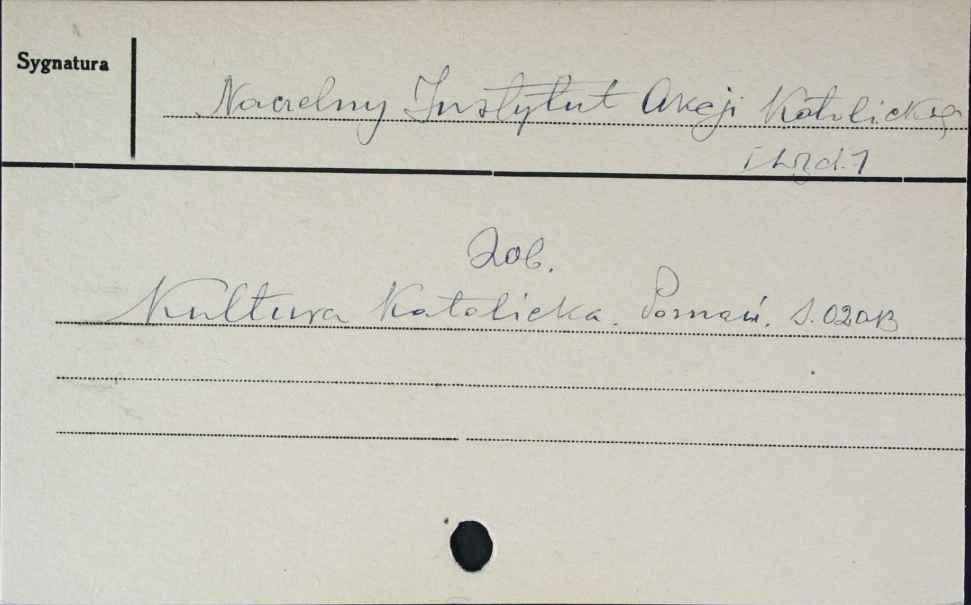 Sygnatura
Naczelny Instytut Akcji Katolickiej
Zob.
Kultura Katolicka. Poznań. S.020B